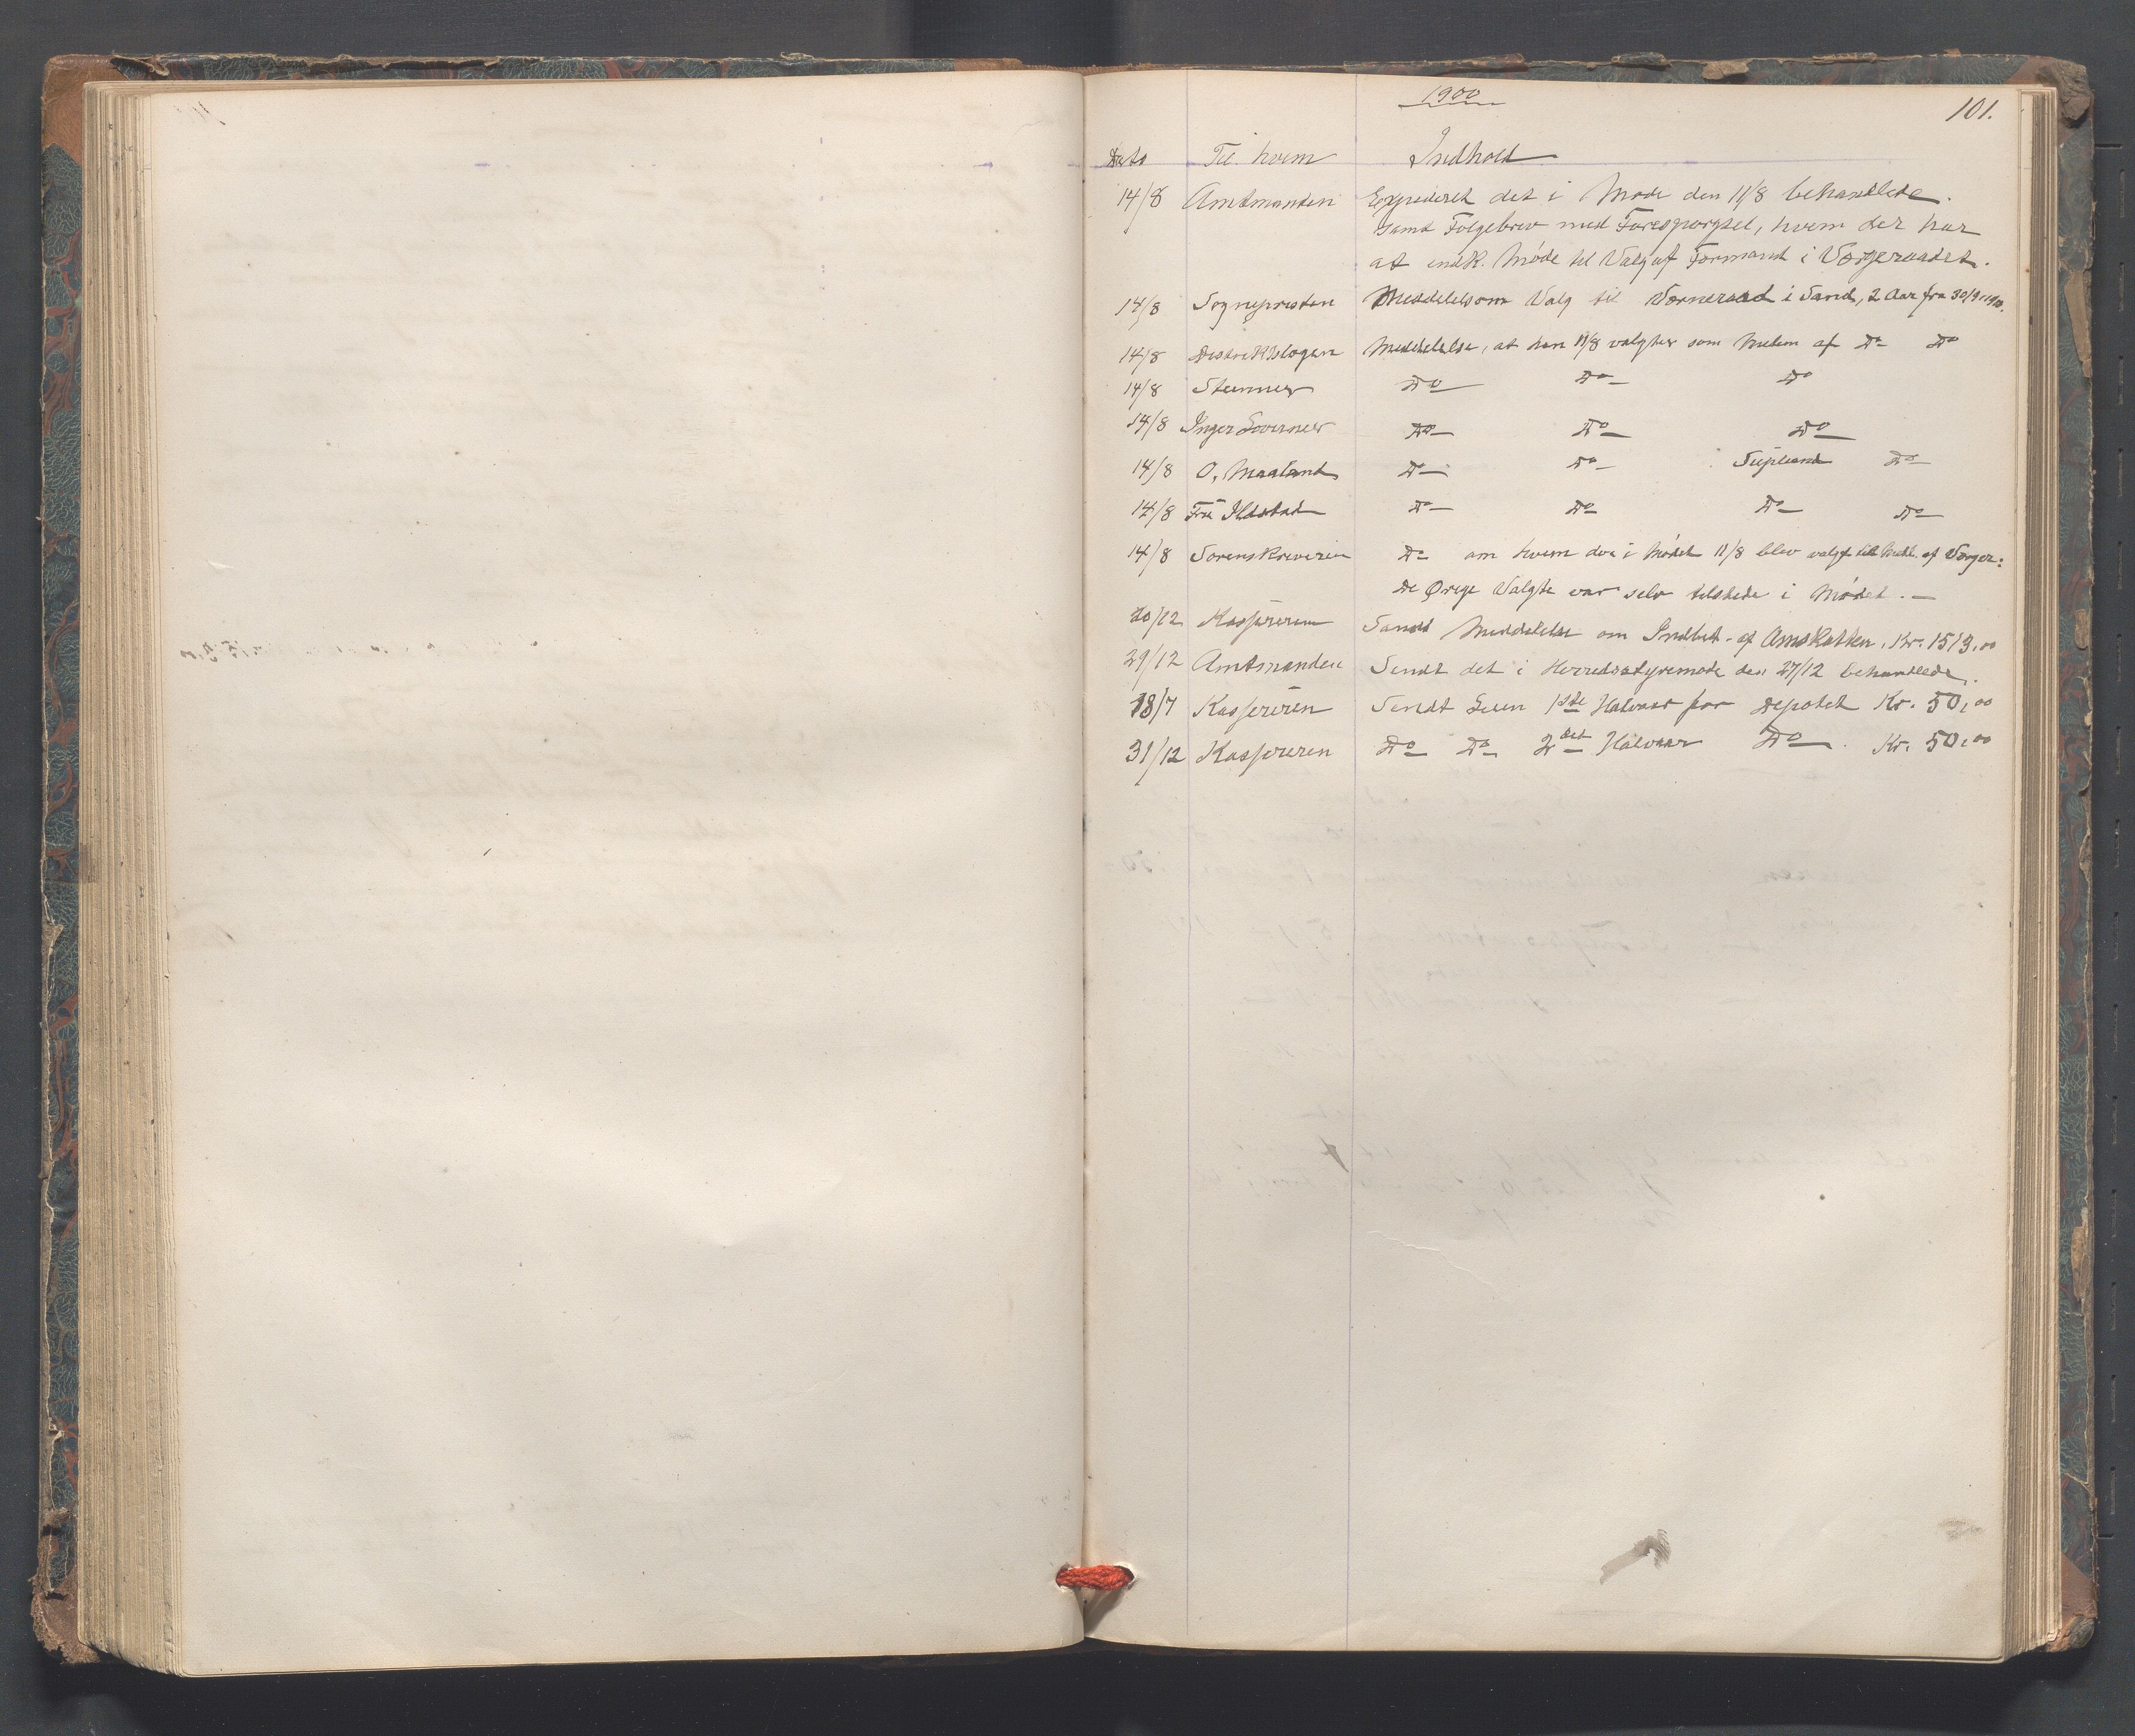 1900
101.
Dato Til hvem Indhold
14/8 Amtmanden Expederet det i Møde den 11/8 behandlede.
samt Følgebrev med Forespørgsel, hvem der har
at indk. Møde til Valg af Formand i Værgeraadet.
14/8 Sognepresten Meddelelse om Valg til Værneraad i Sand, 2 Aar fra 30/9 1900.
14/8 Distriktslægen Meddelelse, at han 11/8 valgtes som Medlem af Do Do
14/8 Steumer Do Do Do
14/8 Inger Do Do Do
14/8 O. Maaland Do Do Supleant Do
14/8 Fru Ilastad Do Do Do Do
14/8 Sorenskriveren Do om hvem der i Mødet 11/8 blev valgt til Medl. af Værger:
De Øvrige Valgte var selv tilstede i Mødet. —
20/12 Kassereren Sendt Meddelelse om Indbet. af Amtskatten. Kr. 1513,00
29/12 Amtmanden Sendt det i Herredsstyremøte den 27/12 behandlede.
18/7 Kassereren Sendt Leien 1ste Halvaar for Depotet Kr. 50,00
31/12 Kassereren Do Do 2det Halvaar Do Kr. 50,00